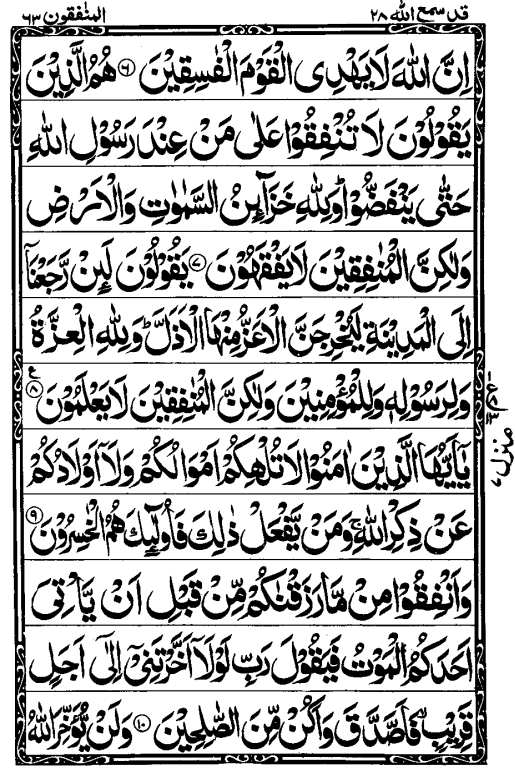 قد سمع الله ٢٨
المنٰفقون ٦٣
اِنَّ اللّٰهَ لَا يَهْدِى الْقَوْمَ الْفٰسِقِيْنَ ۝٦ هُمُ الَّذِيْنَ
يَقُوْلُوْنَ لَا تُنْفِقُوْا عَلٰى مَنْ عِنْدَ رَسُوْلِ اللّٰهِ
حَتّٰى يَنْفَضُّوْا ؕ وَلِلّٰهِ خَزَآىِٕنُ السَّمٰوٰتِ وَالْاَرْضِ
وَلٰكِنَّ الْمُنٰفِقِيْنَ لَا يَفْقَهُوْنَ ۝٧ يَقُوْلُوْنَ لَىِٕنْ رَّجَعْنَاۤ
اِلَى الْمَدِيْنَةِ لَيُخْرِجَنَّ الْاَعَزُّ مِنْهَا الْاَذَلَّ ؕ وَلِلّٰهِ الْعِزَّةُ
وَلِرَسُوْلِهٖ وَلِلْمُؤْمِنِيْنَ وَلٰكِنَّ الْمُنٰفِقِيْنَ لَا يَعْلَمُوْنَ ۝٨ ع
يٰۤاَيُّهَا الَّذِيْنَ اٰمَنُوْا لَا تُلْهِكُمْ اَمْوَالُكُمْ وَلَاۤ اَوْلَادُكُمْ
عَنْ ذِكْرِ اللّٰهِ ۚ وَمَنْ يَّفْعَلْ ذٰلِكَ فَاُولٰٓىِٕكَ هُمُ الْخٰسِرُوْنَ ۝٩
وَاَنْفِقُوْا مِنْ مَّا رَزَقْنٰكُمْ مِّنْ قَبْلِ اَنْ يَّاْتِىَ
اَحَدَكُمُ الْمَوْتُ فَيَقُوْلَ رَبِّ لَوْلَاۤ اَخَّرْتَنِىْۤ اِلٰۤى اَجَلٍ
قَرِيْبٍ ۙ فَاَصَّدَّقَ وَاَكُنْ مِّنَ الصّٰلِحِيْنَ ۝١٠ وَلَنْ يُّؤَخِّرَ اللّٰهُ
منزل ٧